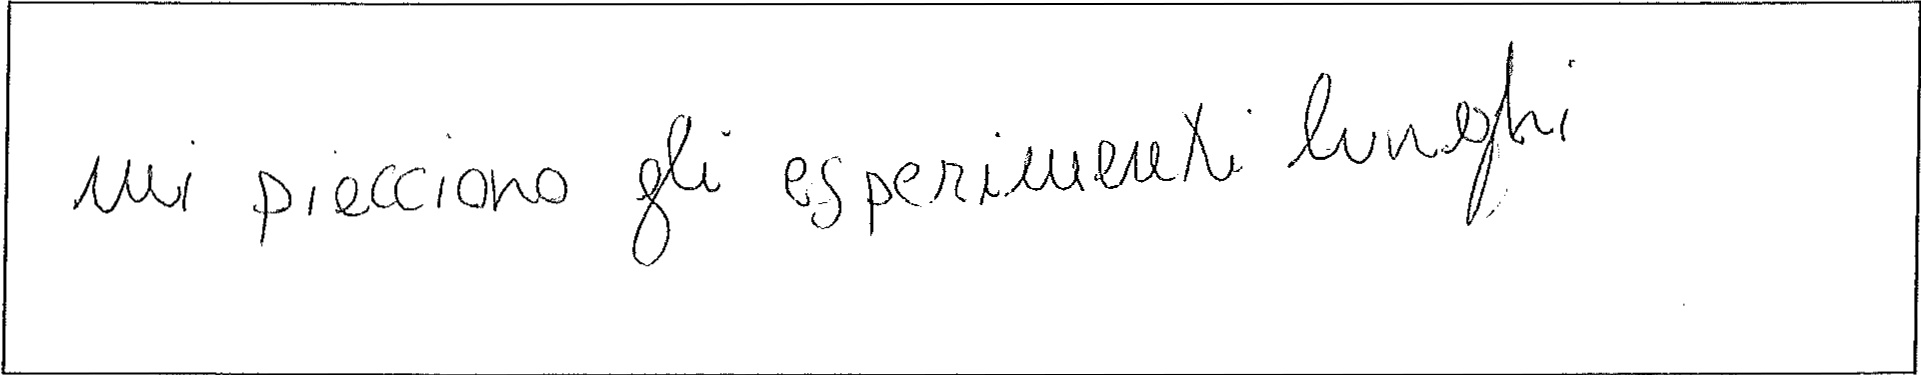 mi piacciono gli esperimenti lunghi